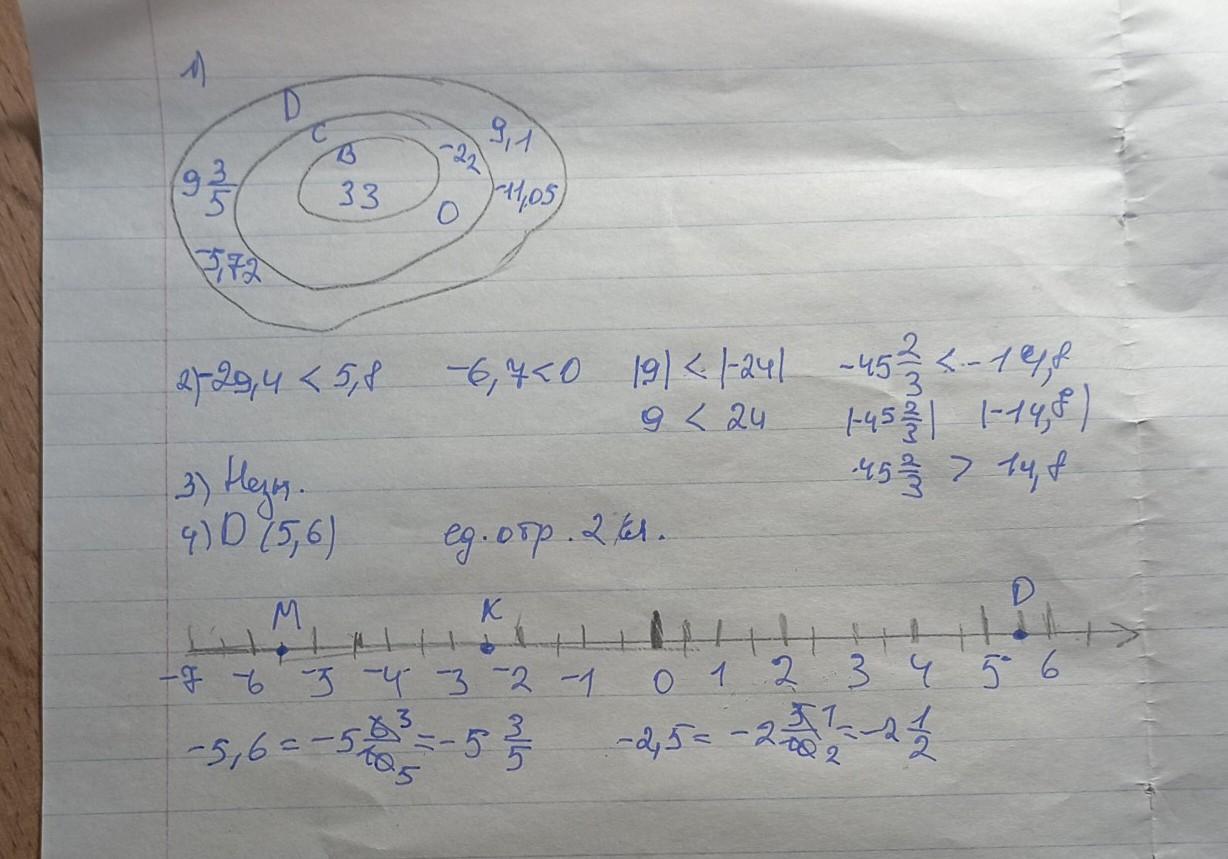 1)
D
C
B
9 3/5
33
-22
0
9,1
-11,05
-5,72
2) -29,4 < 5,8 -6,7 < 0 |9| < |-24| -45 2/3 < -14,8
9 < 24 |-45 2/3| |-14,8|
45 2/3 > 14,8
3)
4) D (5,6) ед. отр. 2 кл.
M K D
-7 -6 -5 -4 -3 -2 -1 0 1 2 3 4 5 6
-5,6 = -5 6/10 3/5 = -5 3/5 -2,5 = -2 5/10 1/2 = -2 1/2